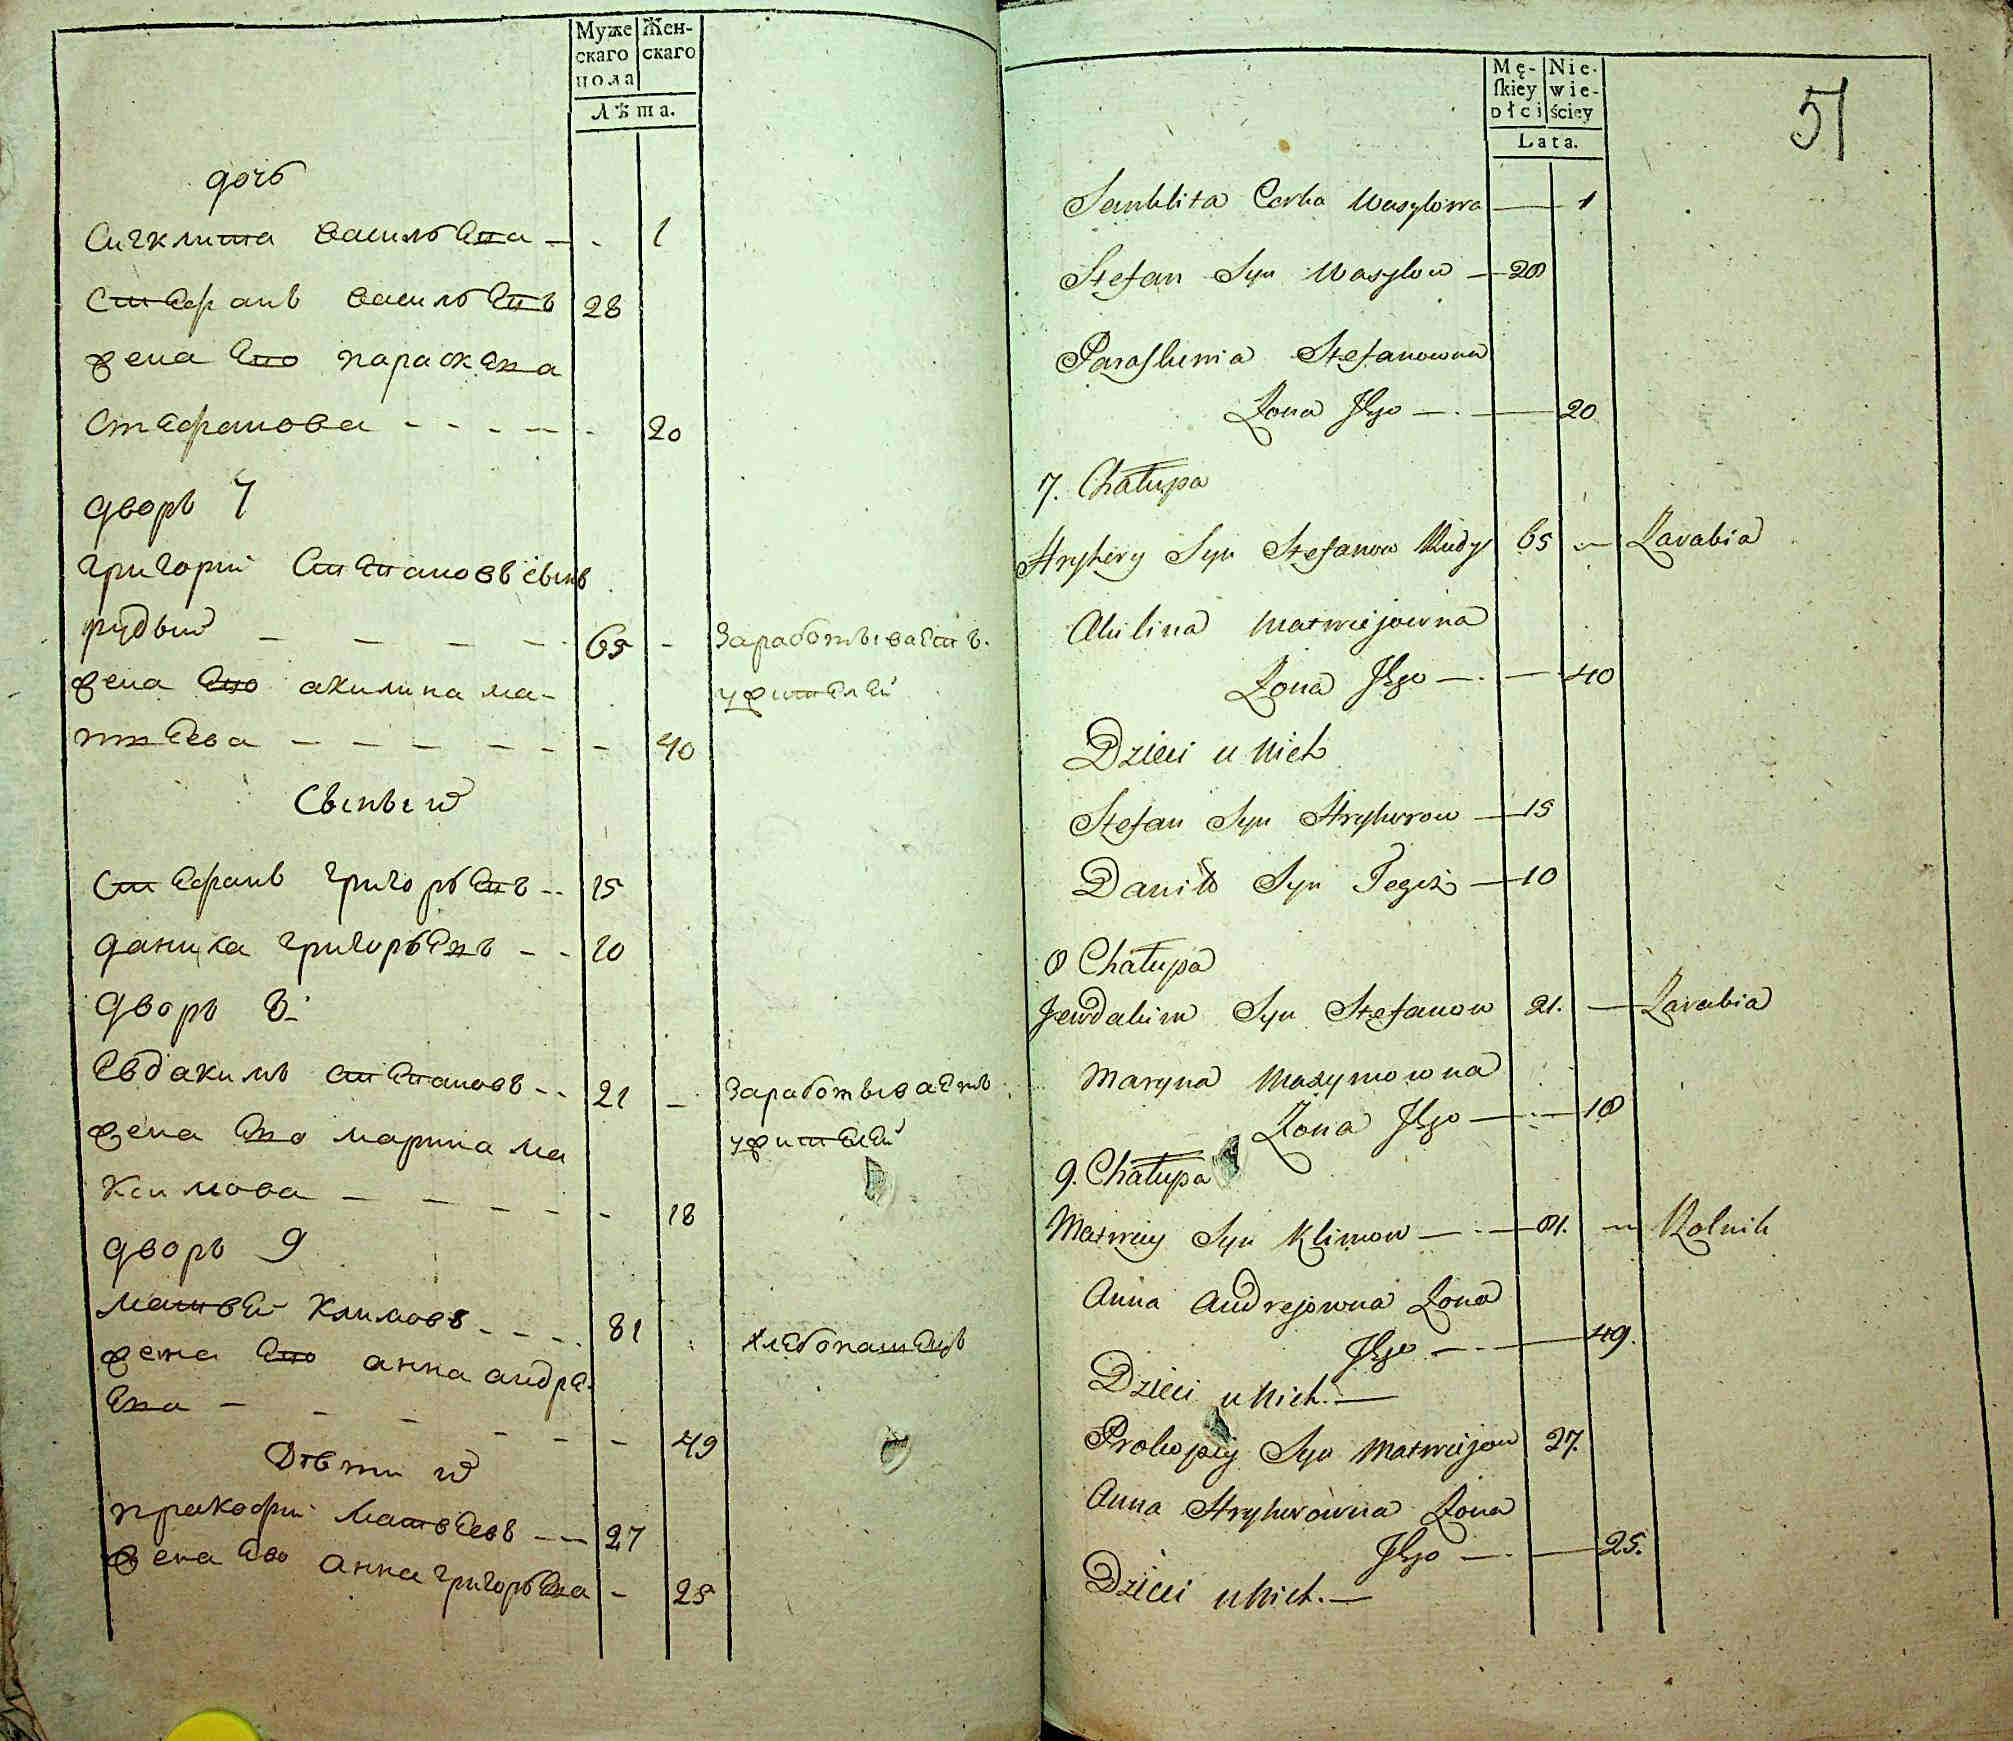 Муже
скаго
пола
Жен-
скаго
Лѣта.
дочь
Сигклита васильева - - 1
Стефанъ васильевъ 28
жена ево параскева
Стефанова - - - - - 20
дворъ 7
григорий Степановъ сынъ
рудый - - - - - 65 - Зарабатываетъ.
жена ево акилина ма-
твеева - - - - - - 40
Сыны и
Стефанъ григорьевъ - - 15
данила григорьевъ - - 10
дворъ 8
Евдакимъ степановъ - - 21 - Заработываетъ
жена ево марина ма
ксимова - - - - - - 18
дворъ 9
матвей климовъ - - - - 81 хлебопашецъ
жена ево анна андре-
ева - - - - - - 49
Дѣти и
пракофий матвеевъ - - 27
жена ево анна григорьева - 25
Mę-
skiey
płci
Nie-
wie-
ściey
Lata.
51
Carka Wasylowa — 1
Stefan Syn Wasylow — 28
Paraskewia Stefanowna
Zona Jego — . — 20
7. Chałupa
Hryhery Syn Stefanow Rudy 65 — Zarabia
Akilina Matwiejowna
Zona Jego — . — 40
Dzieci u Nich
Stefan Syn Hryhorow — 15
Daniło Syn Tegoż — 10
8 Chałupa
Jewdakim Syn Stefanow 21. — Zarabia
Maryna Maxymowna
Zona Jego — . — 18
9. Chałupa
Matwiey Syn Klimow — . — 81. — Rolnik
Anna Andrejowna Zona
Jego — . — 49.
Dzieci u Nich. —
Prokopiy Syn Matwiejow 27.
Anna Hryhorowna Zona
Jego — . — 25.
Dzieci u Nich. —